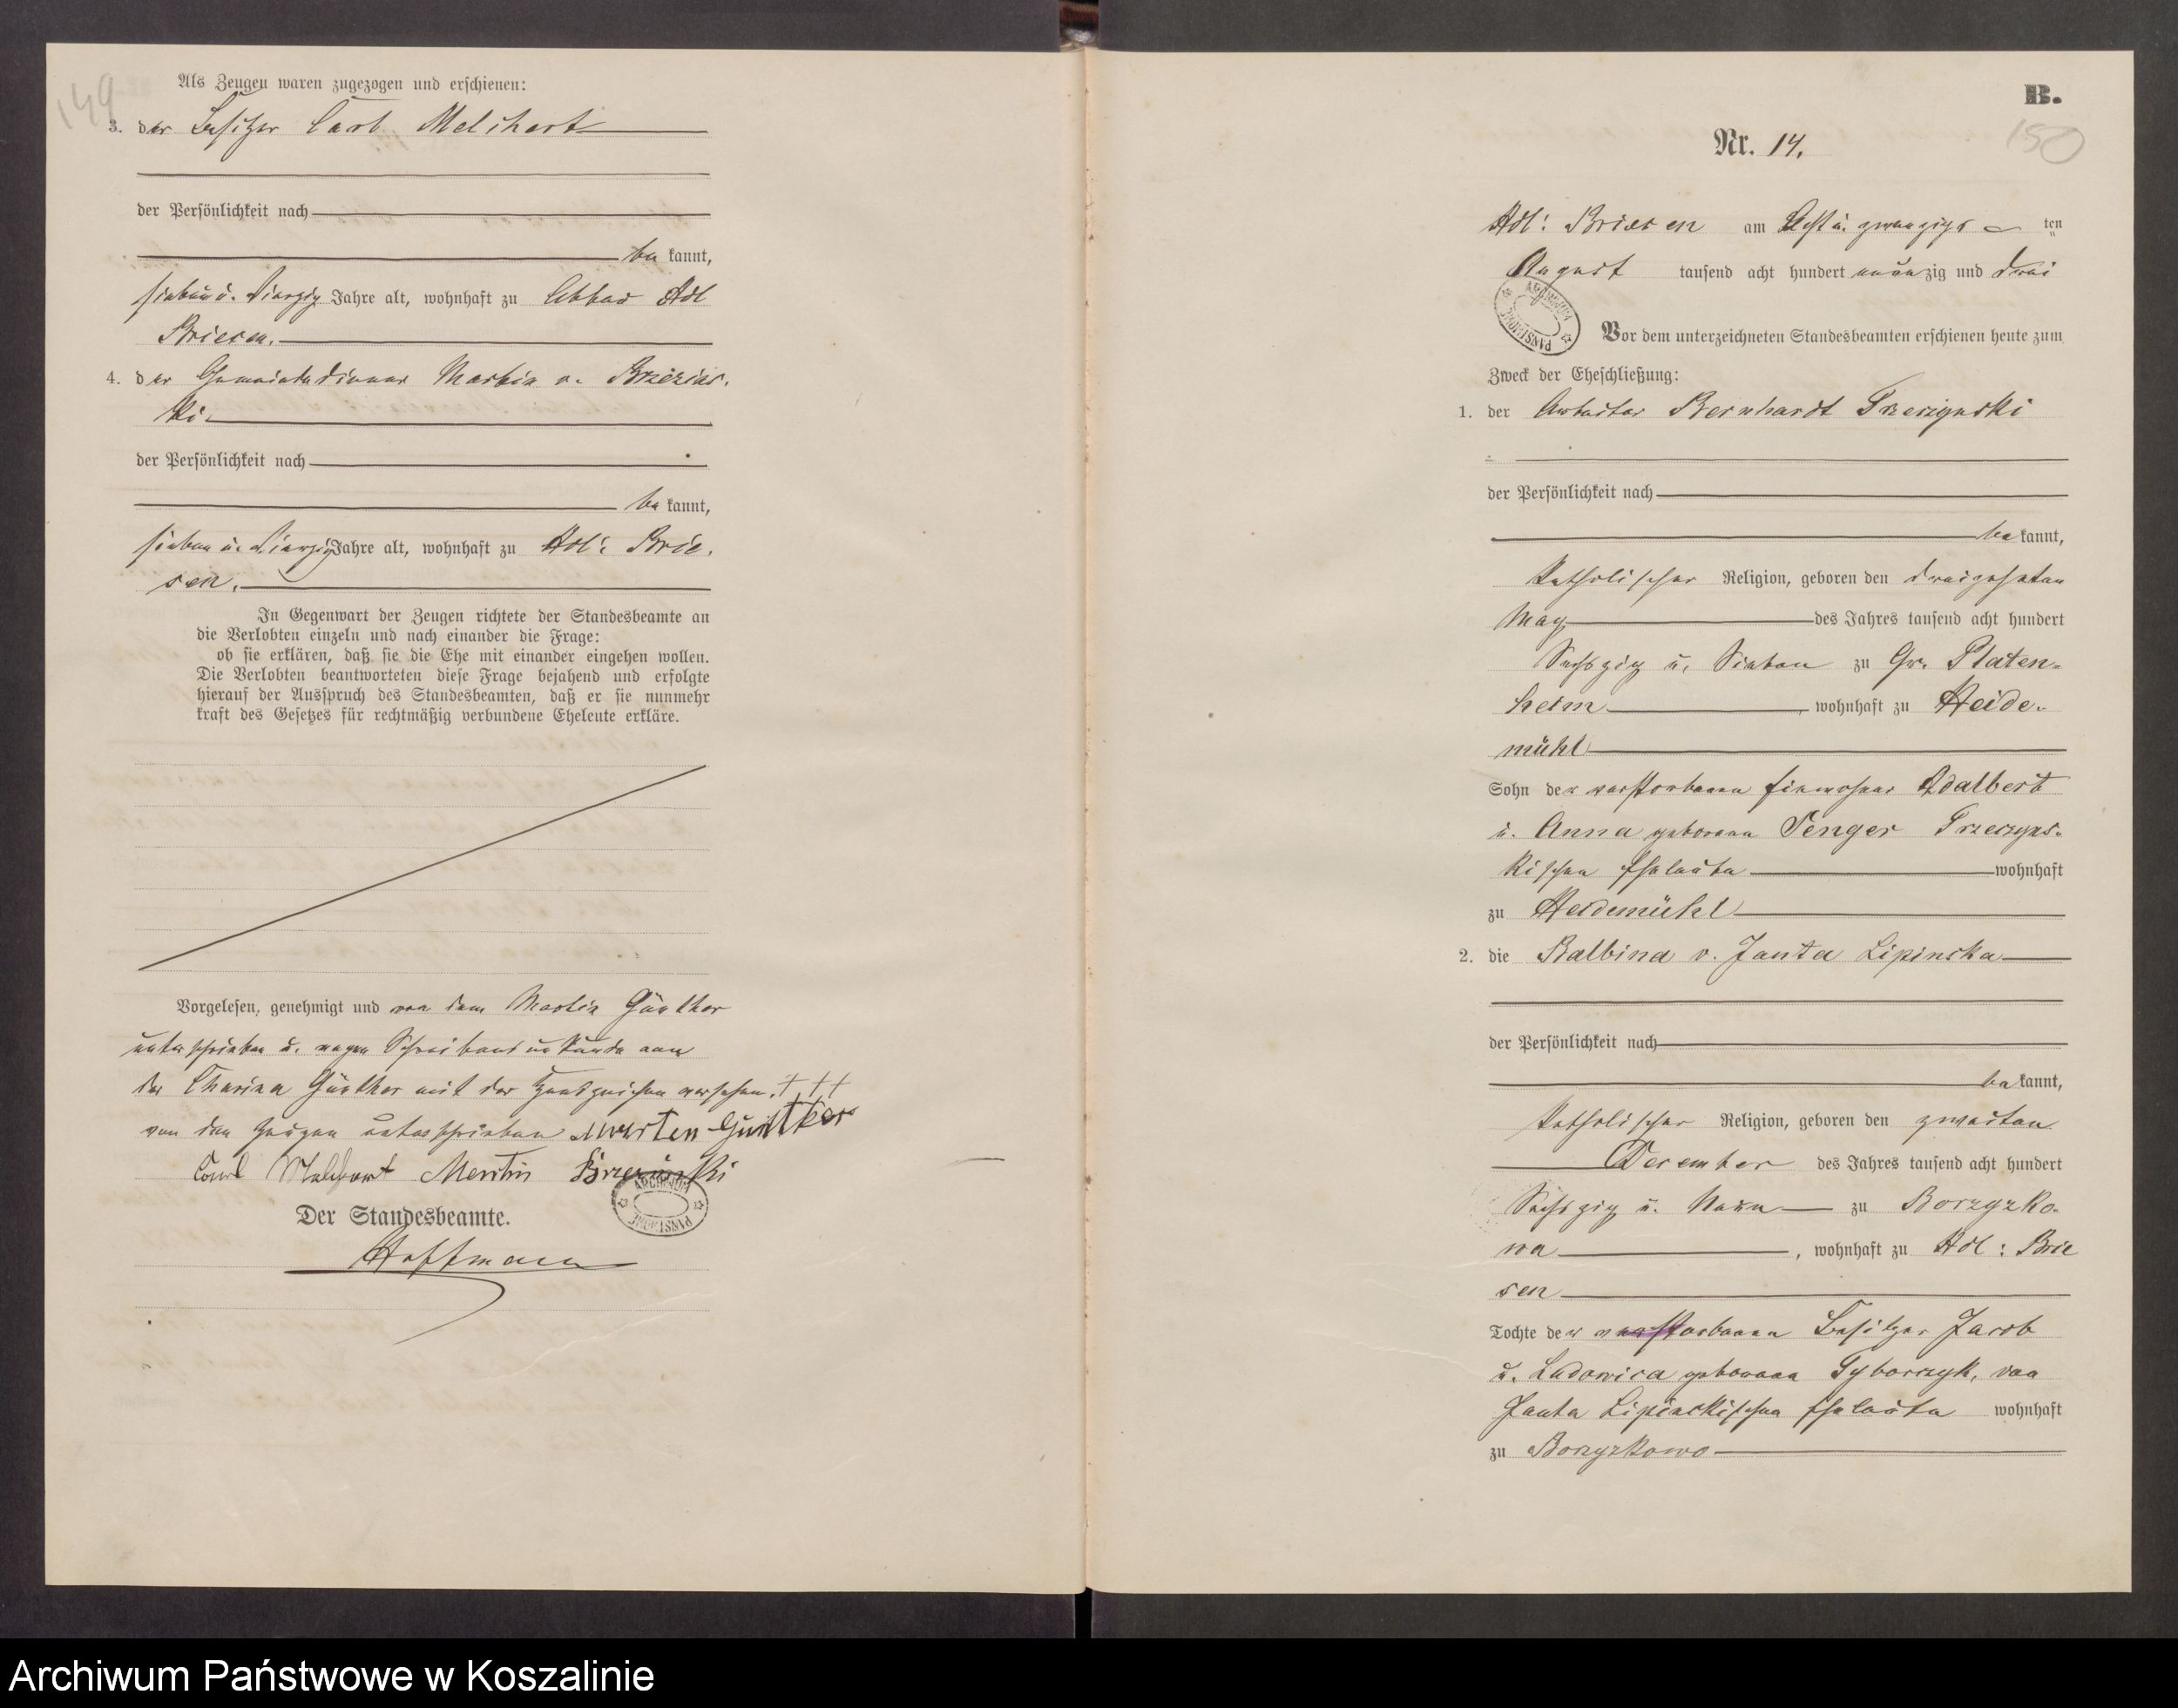 149
Als Zeugen waren zugezogen und erschienen:
3. der Besitzer Carl Melchert
der Persönlichkeit nach
be kannt,
sieben u. vierzig Jahre alt, wohnhaft zu Abbau Adl
Briesen.
4. der Gemeindediener Martin v. Brzezins-
ki
der Persönlichkeit nach
be kannt,
sieben u. vierzig Jahre alt, wohnhaft zu Adl: Brie-
sen.
In Gegenwart der Zeugen richtete der Standesbeamte an
die Verlobten einzeln und nach einander die Frage:
ob sie erklären, daß sie die Ehe mit einander eingehen wollen.
Die Verlobten beantworteten diese Frage bejahend und erfolgte
hierauf der Ausspruch des Standesbeamten, daß er sie nunmehr
kraft des Gesetzes für rechtmäßig verbundene Eheleute erkläre.
Vorgelesen, genehmigt und von dem Martin Günther
unterschrieben u. wegen Schreibens unkunde von
der Günther mit der Handzeichen versehen. +++
von den Zeugen unterschrieben Marten Günther
Carl Melchert Martin Brzezinski
ARCHIWUM PAŃSTWOWE
Der Standesbeamte.
Hoffmann
B.
150
Nr. 14.
Adl: Briesen am Acht u. zwanzigs ten
August tausend acht hundert neunzig und drei
ARCHIWUM PAŃSTWOWE
Vor dem unterzeichneten Standesbeamten erschienen heute zum
Zweck der Eheschließung:
1. der Arbeiter Bernhardt Trzeczynski
der Persönlichkeit nach
be kannt,
katholischer Religion, geboren den dreizehnten
May des Jahres tausend acht hundert
Sechszig u. Sieben zu Gr. Platen-
heim, wohnhaft zu Heide-
mühl
Sohn der verstorbenen Einwohner Adalbert
u. Anna geborene Senger Trzeczyns-
kischen Eheleute wohnhaft
zu Heidemühl
2. die Balbina v. Janta Lipinska
der Persönlichkeit nach
be kannt,
katholischer Religion, geboren den zweiten
December des Jahres tausend acht hundert
Sechszig u. Neun zu Borzyzko-
wa, wohnhaft zu Adl: Brie
sen
Tochte der verstorbenen Besitzer Jacob
u. Ludowica geborene Gyborczyk, von
Janta Lipinskischen Eheleute wohnhaft
zu Borzyzkowo
Archiwum Państwowe w Koszalinie